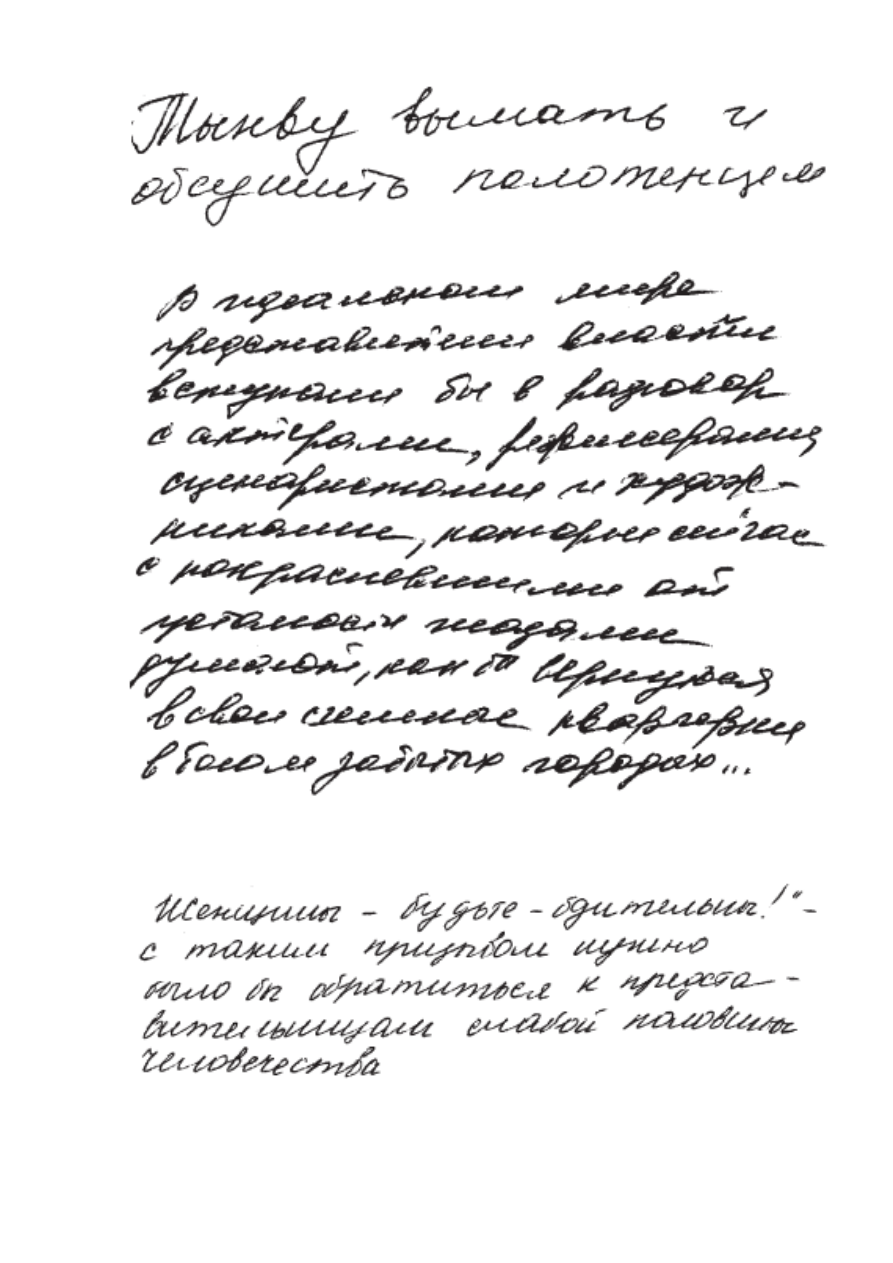 Тыкву вымать и
обсушить полотенцем
В идеальном мире
представители власти
вступали бы в разговор
с актёрами, режиссерами,
сценаристами и худож-
никами, которые сейчас
с покрасневшими от
усталости глазами
думают, как б вернуться
в свои съемные квартирки
в богом забытых городах...
Женщины - будьте - бдительны!" -
с таким призывом нужно
было бы обратиться к предста-
вительницам слабой половины
человечества